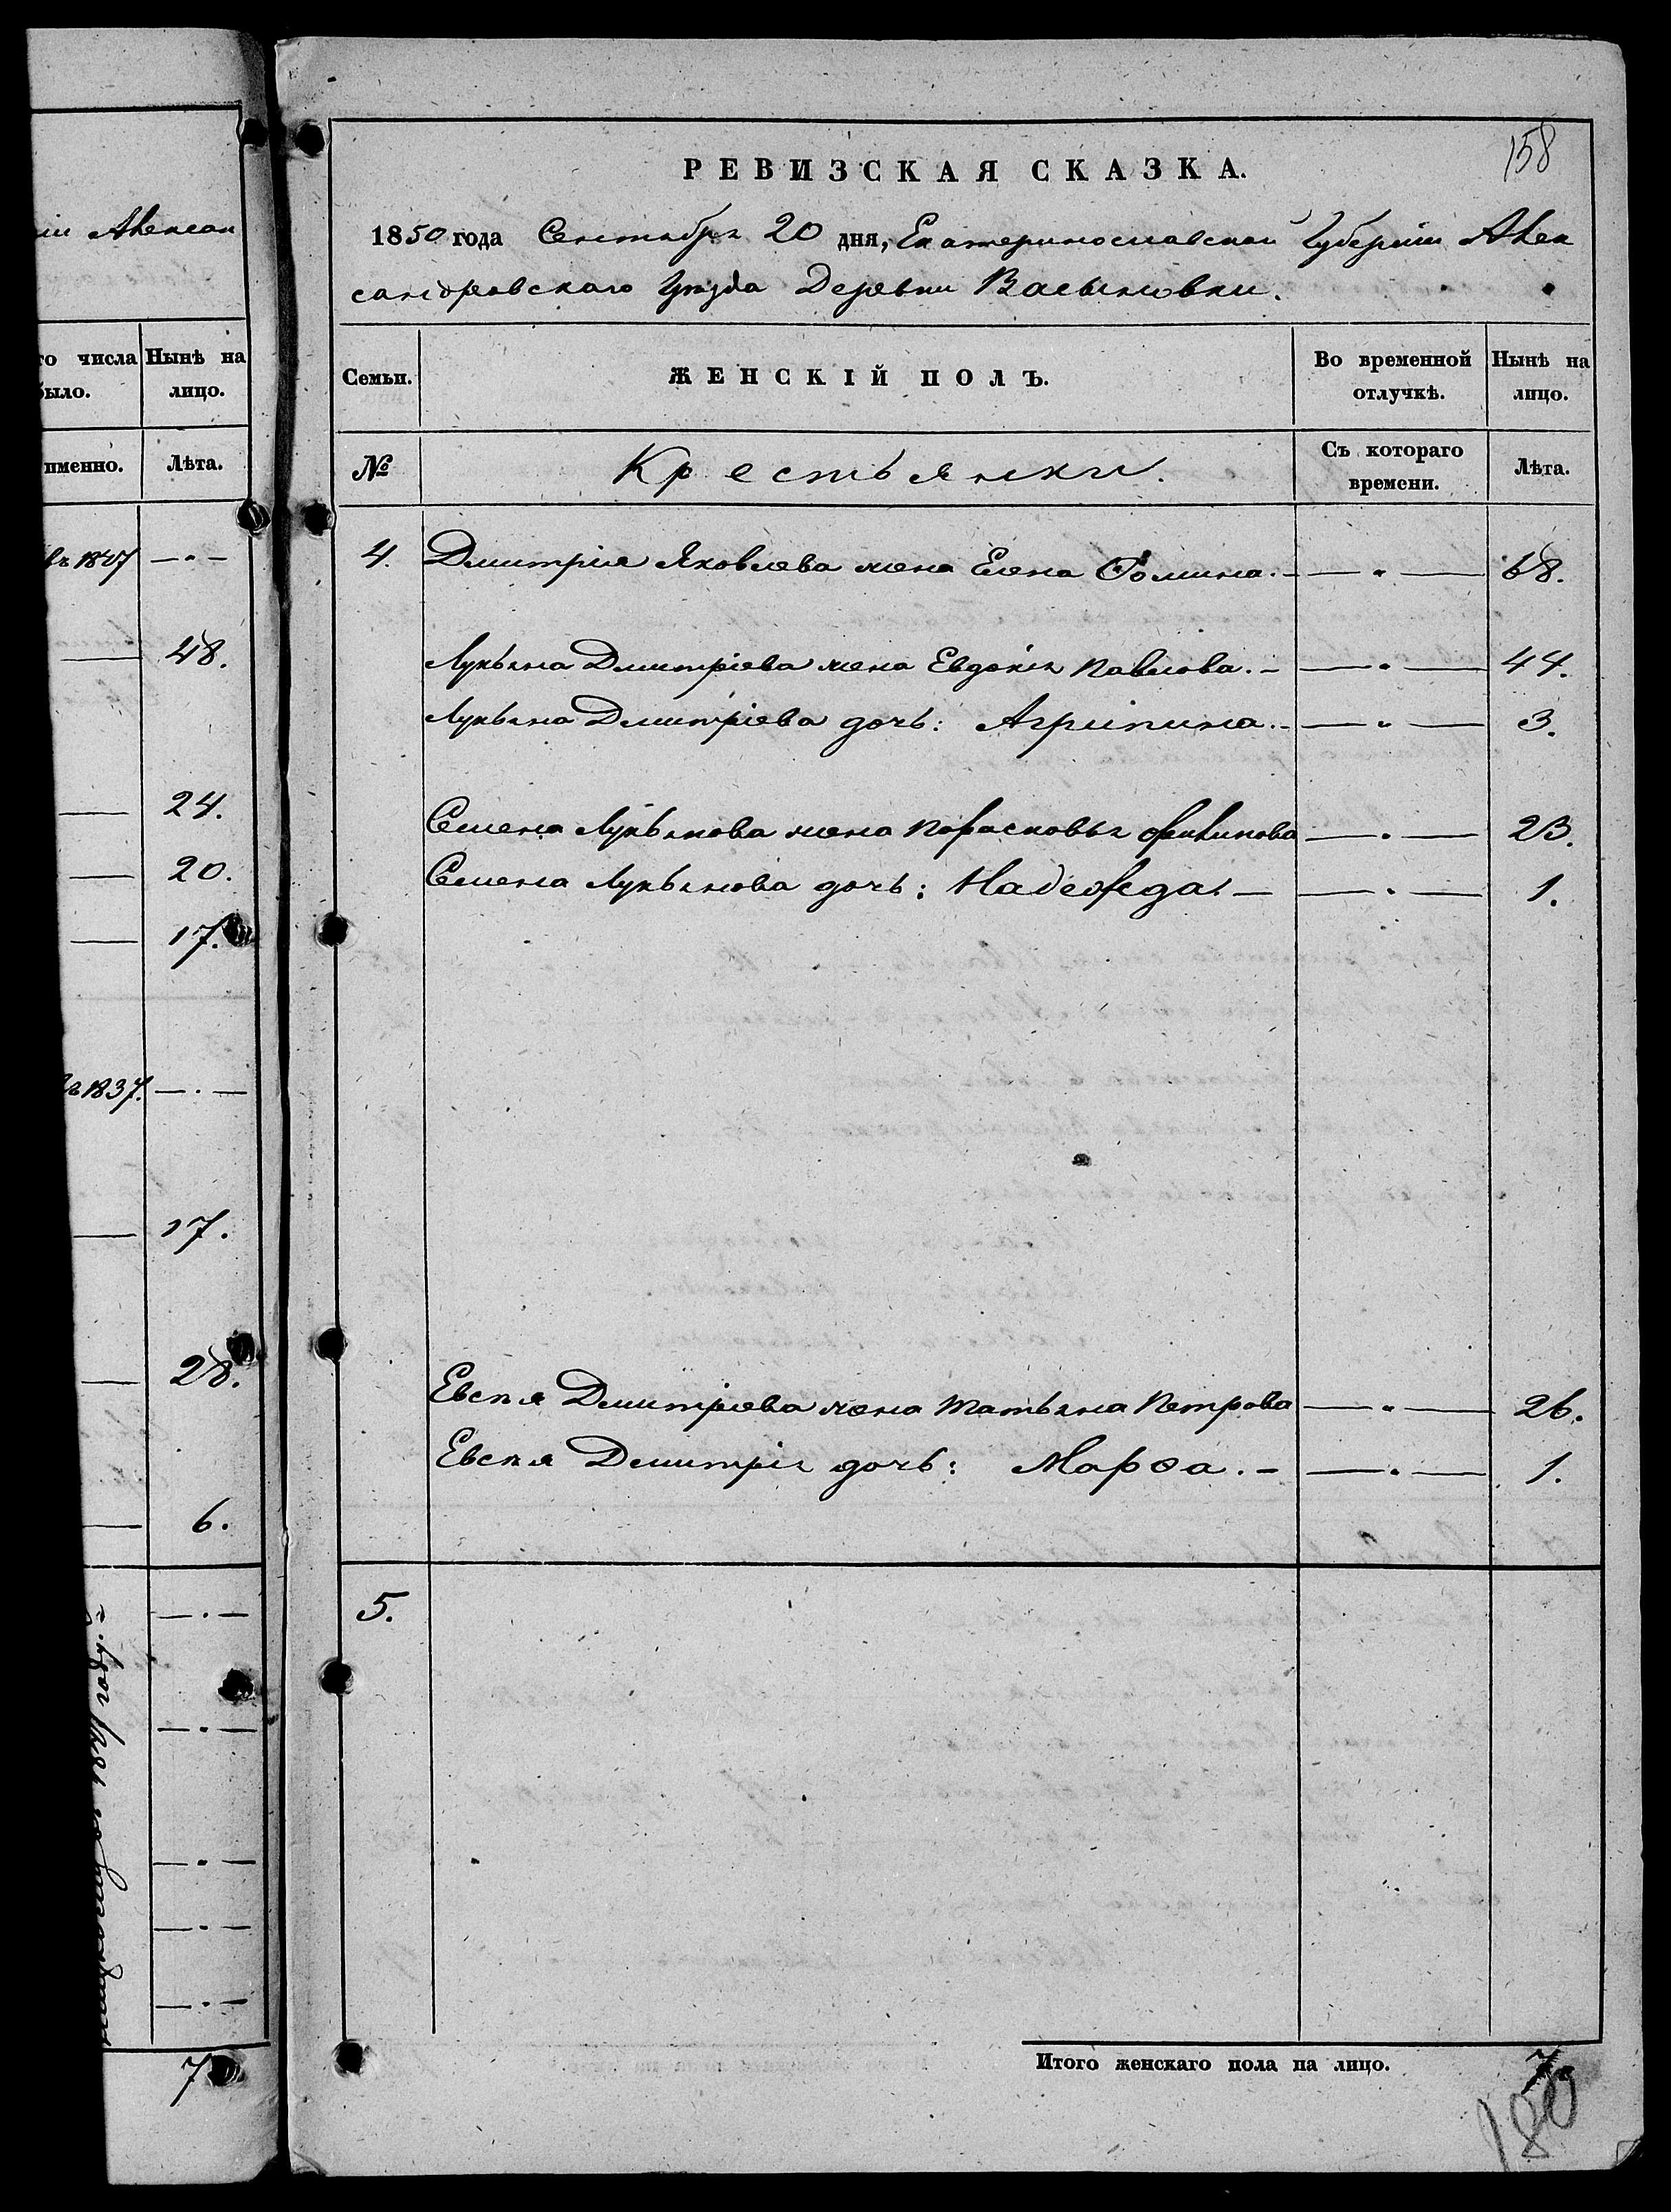 ій Алексан
го числа Нынѣ на
было. лицо.
именно. Лѣта.
въ 1847 — " —
48.
24.
20.
17.
1837. — " —
17.
28.
6.
7
158
РЕВИЗСКАЯ СКАЗКА.
1850 года Сентября 20 дня, Екатеринославской Губерніи Алек
сандровскаго Уѣзда Деревни Васыновки.
Семьи. ЖЕНСКІЙ ПОЛЪ. Во временной отлучкѣ. Нынѣ на лицо.
№ Крестьянки. Съ котораго времени. Лѣта.
4. Дмитрія Яковлева жена Елена Фомина. — " — 68.
Лукьяна Дмитріева жена Евдокія Павлова. — " — 44.
Лукьяна Дмитріева дочь: Агрипина. — " — 3.
Семена Лукьянова жена Порасковья — " — 23.
Семена Лукьянова дочь: Надежда. — " — 1.
Евсѣя Дмитріева жена Татьяна Петрова — " — 26.
Евсѣя Дмитрія дочь: Марѳа. — " — 1.
5.
Итого женскаго пола на лицо. 7.
180